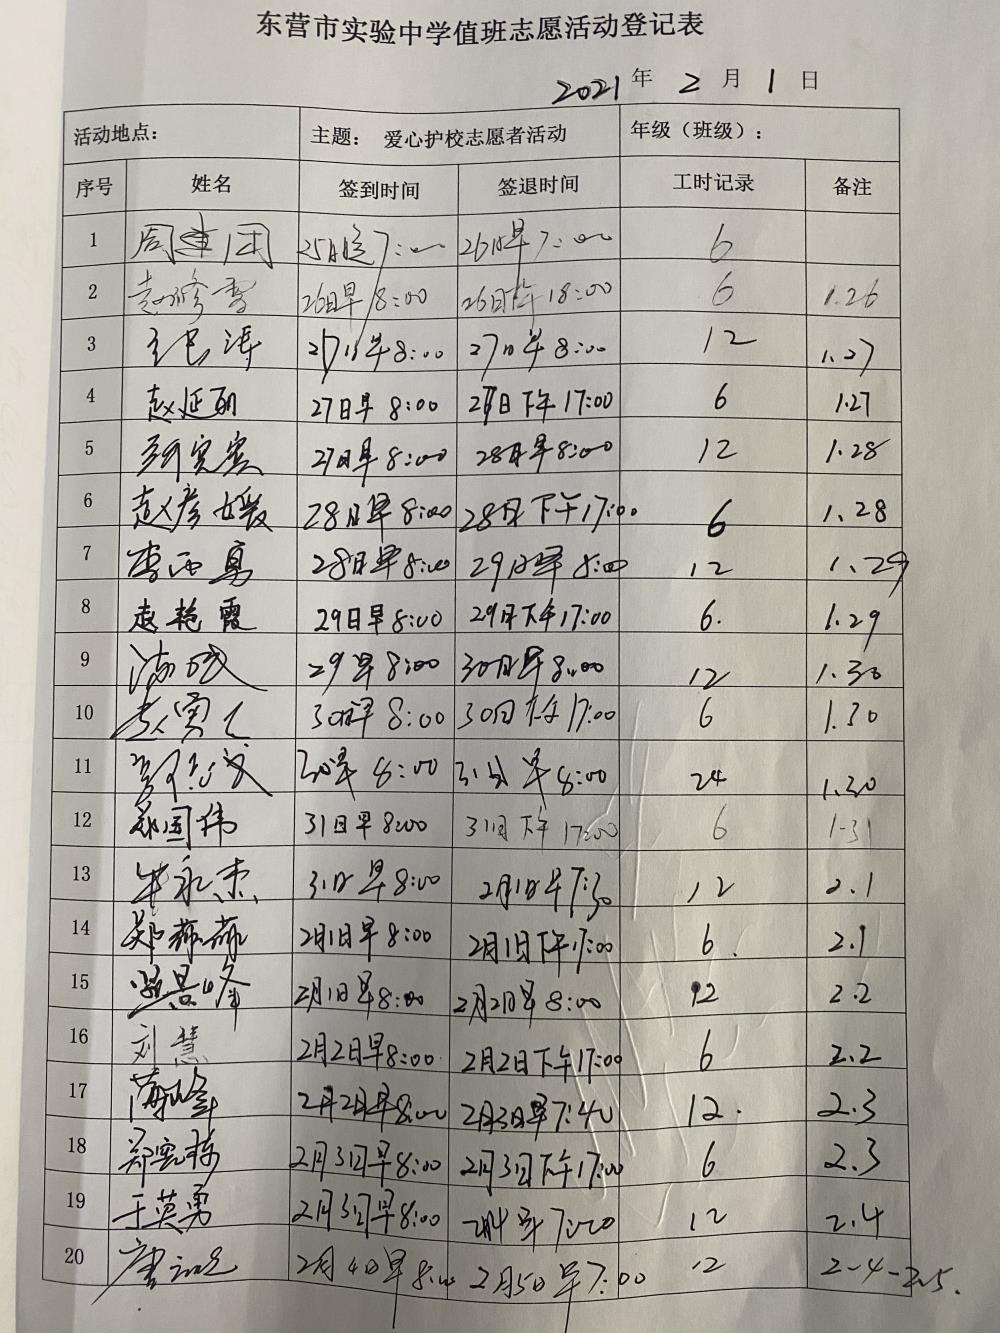 东营市实验中学值班志愿活动登记表
2021年 2月 1日
活动地点： 主题： 爱心护校志愿者活动 年级（班级）：
序号 姓名 签到时间 签退时间 工时记录 备注
1 25日 7:00 26日早7:00 6
2 赵修雪 26日早8:00 26日下午18:00 6 1.26
3 27日早8:00 27日早8:00 12 1.27
4 赵延丽 27日早8:00 27日下午17:00 6 1.27
5 27日早8:00 28日早8:00 12 1.28
6 赵彦媛 28日早8:00 28日下午17:00 6 1.28
7 李西勇 28日早8:00 29日早8:00 12 1.29
8 赵艳霞 29日早8:00 29日下午17:00 6. 1.29
9 29早8:00 30日早8:00 12 1.30
10 30日早8:00 30日下午17:00 6 1.30
11 30早8:00 31日早8:00 24 1.30
12 郑国伟 31日早8:00 31日下午17:00 6 1-31
13 牛永杰 31日早8:00 2月1日早7:30 12 2.1
14 2月1日早8:00 2月1日下午17:00 6. 2.1
15 2月1日早8:00 2月2日早8:00 12 2.2
16 刘慧 2月2日早8:00 2月2日下午17:00 6 2.2
17 2月2日早8:00 2月3日早7:40 12. 2.3
18 2月3日早8:00 2月3日下午17:00 6 2.3
19 于英勇 2月3日早8:00 2月4早7:20 12 2.4
20 2月4日早8:00 2月5日早7:00 12 2-4-2.5.